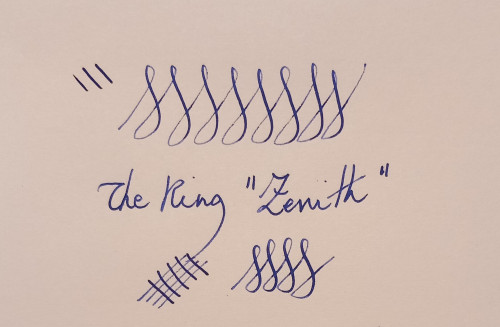 The King "Zenith"